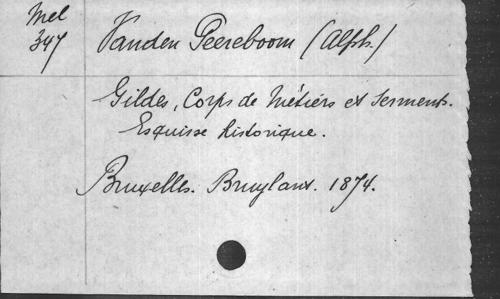 Mel
347
Vanden Peereboom (Alph.)
Gildes, Corps de Métiers et Serments.
Esquisse historique.
Bruxelles. Bruylant. 1874.